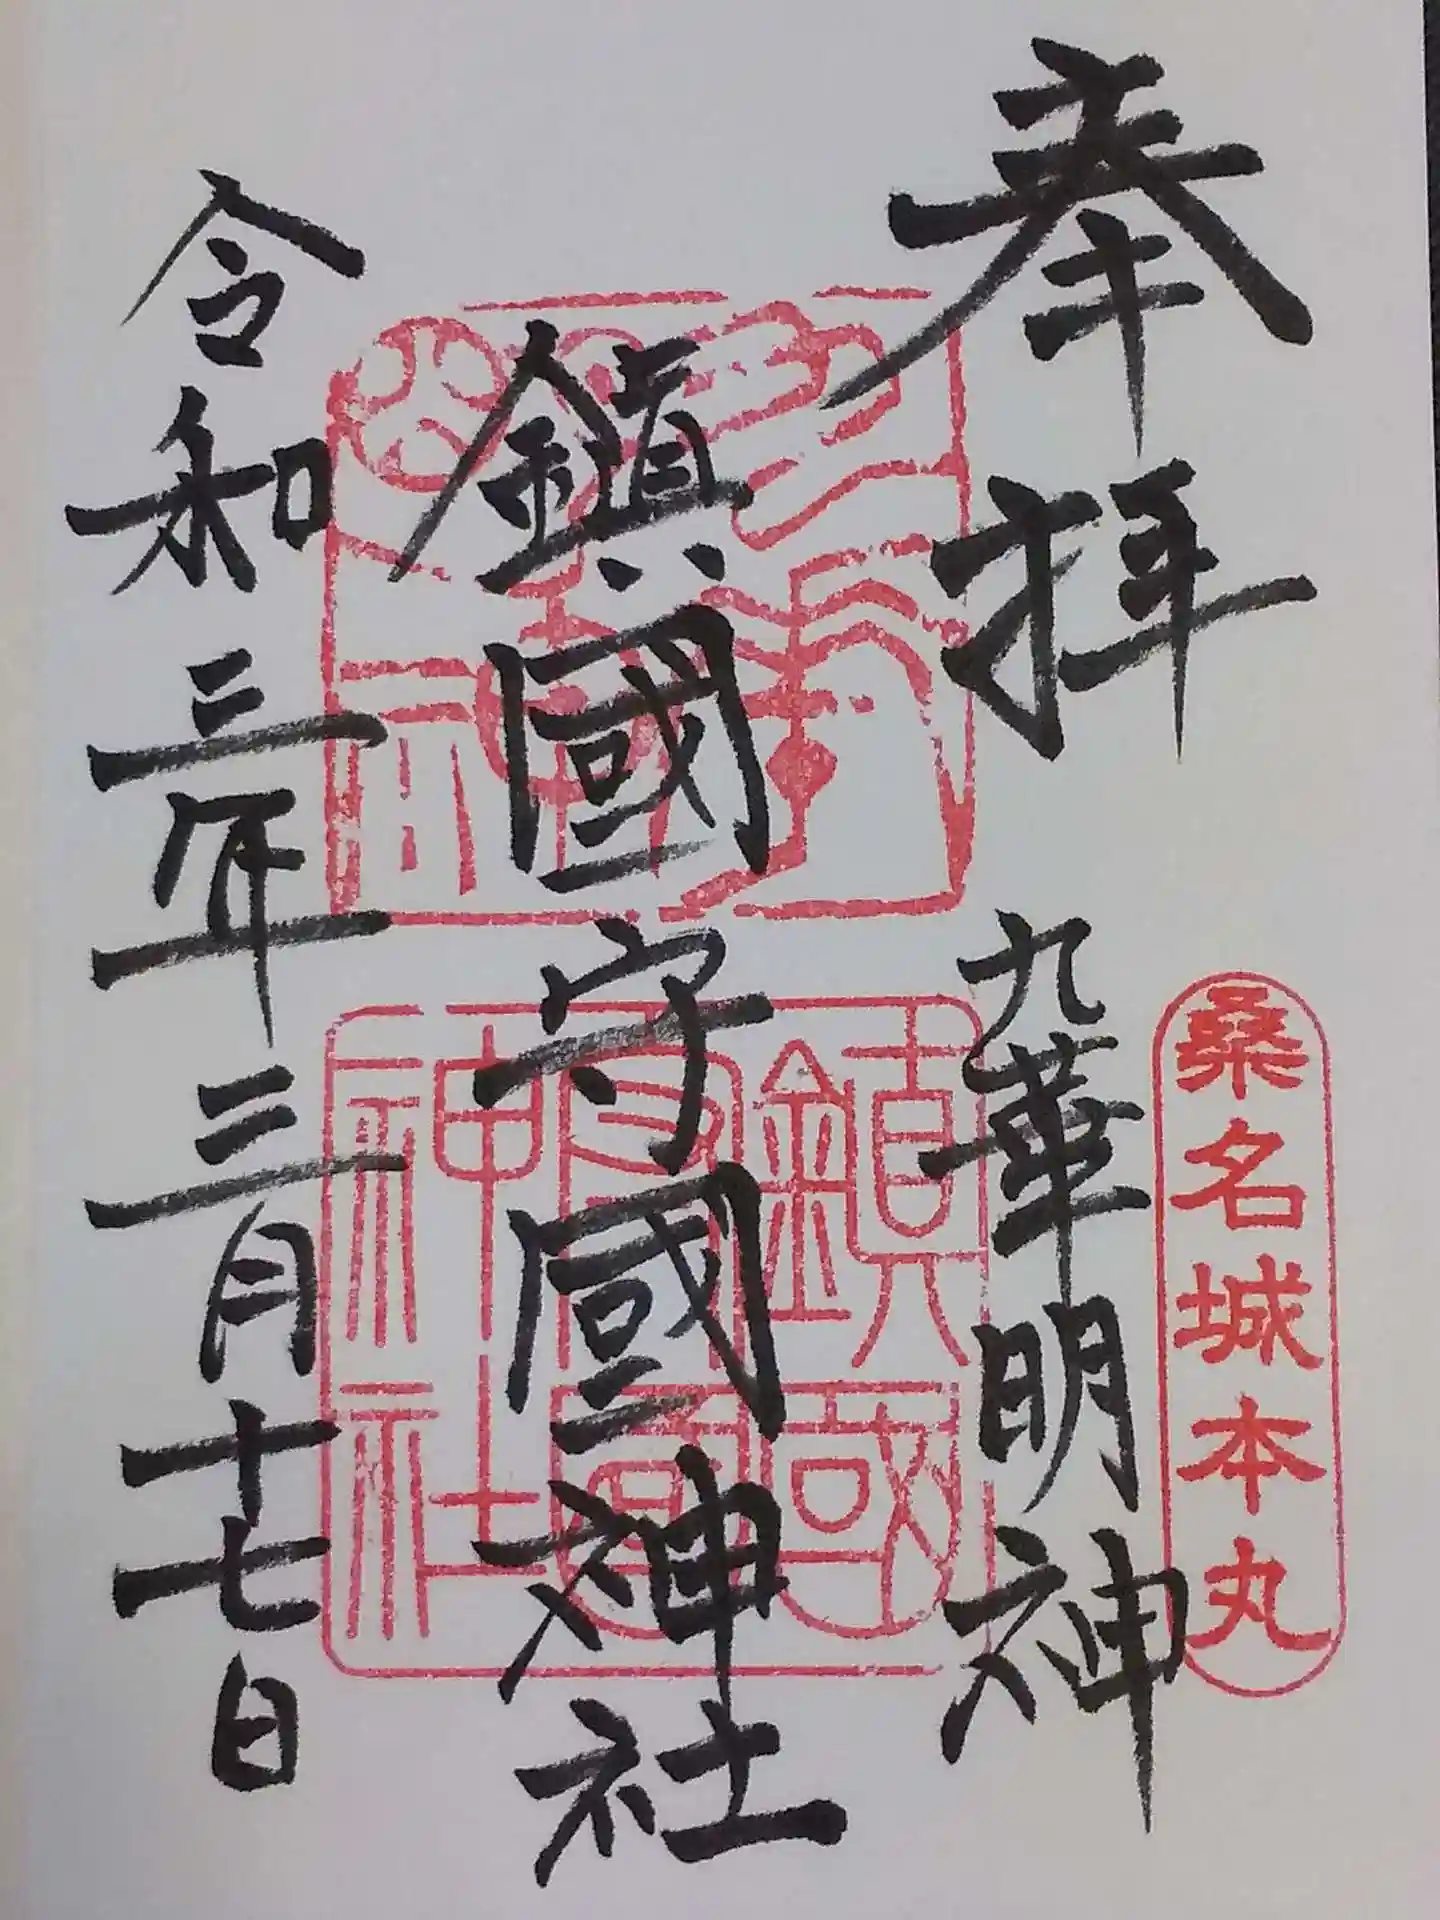 奉拝
桑名城本丸
九華明神
鎮國守國神社
鎮國
守國
神社
令和三年三月十七日